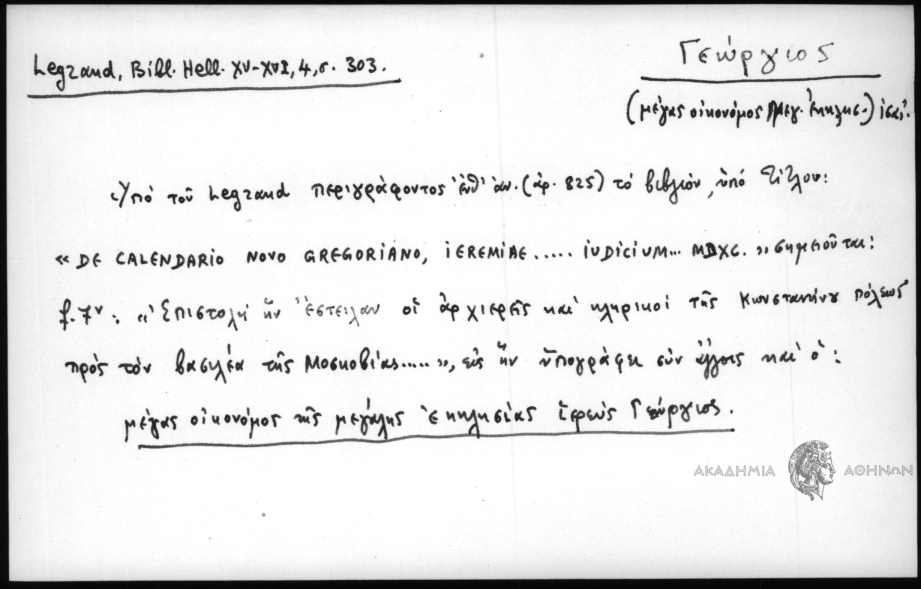 Legrand, Bibl. Hell. XV-XVI, 4, σ. 303.
Γεώργιος
(μέγας οἰκονόμος Μεγ. Ἐκκλησ.)
Ὑπό τοῦ Legrand περιγράφοντος ἐνθ' ἀν. (ἀρ. 825) τό βιβλίον, ὑπό τίτλον:
«DE CALENDARIO NOVO GREGORIANO, IEREMIAE..... IUDICIUM... MDXC.» σημειοῦται:
f. 7ν: «Ἐπιστολή ἥν ἔστειλαν οἱ ἀρχιερεῖς καί κληρικοί τῆς Κωνσταντίνου πόλεως
πρός τόν βασιλέα τῆς Μοσκοβίας.....», εἰς ἥν ὑπογράφει σύν ἄλλοις καί ὁ:
μέγας οἰκονόμος τῆς μεγάλης ἐκκλησίας ἱερεύς Γεώργιος.
ΑΚΑΔΗΜΙΑ ΑΘΗΝΩΝ